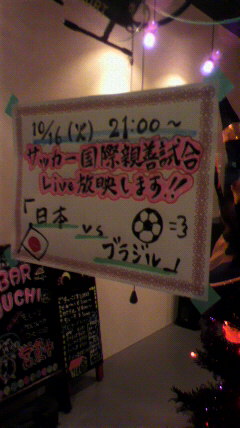 10/16(火) 21:00〜
サッカー国際親善試合
Live放映します!!
「日本
vs
ブラジル」
BAR
UCHI